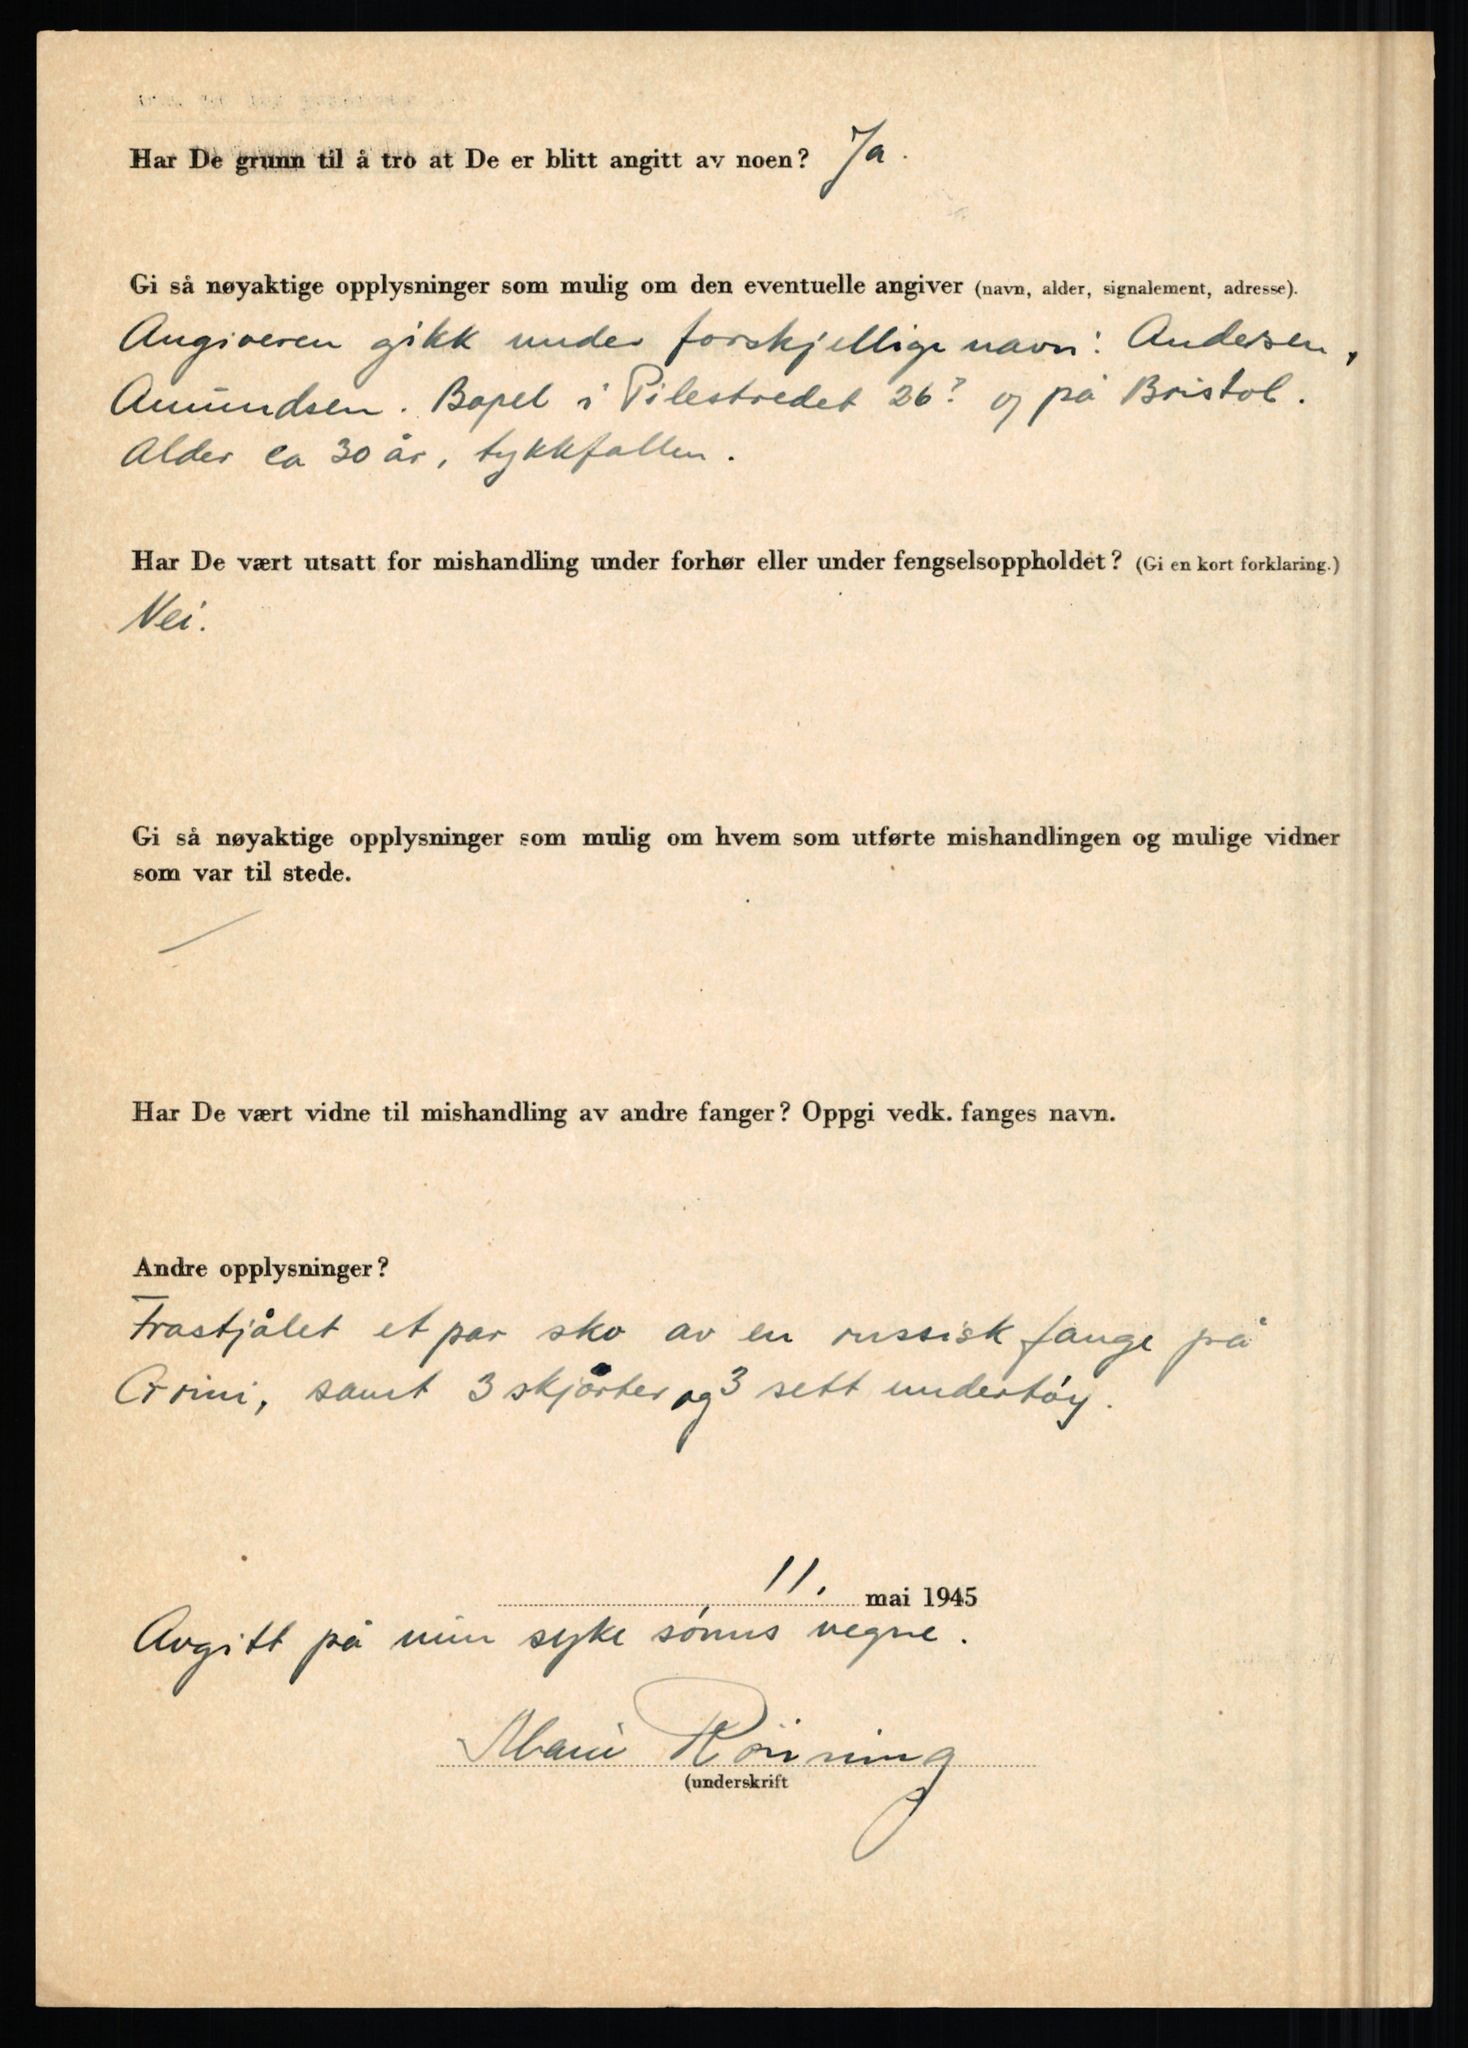 Har De grunn til å tro at De er blitt angitt av noen? Ja.
Gi så nøyaktige opplysninger som mulig om den eventuelle angiver (navn, alder, signalement, adresse).
Angiveren gikk under forskjellige navn: Andersen,
Amundsen. Bopel i Pilestredet 26? og på Bristol.
Alder ca 30 år, tykkfallen.
Har De vært utsatt for mishandling under forhør eller under fengselsoppholdet? (Gi en kort forklaring.)
Nei.
Gi så nøyaktige opplysninger som mulig om hvem som utførte mishandlingen og mulige vidner
som var til stede.
Har De vært vidne til mishandling av andre fanger? Oppgi vedk. fanges navn.
Andre opplysninger?
Frastjålet et par sko av en russisk fange på
Grini, samt 3 skjorter og 3 sett undertøy.
11. mai 1945
Avgitt på min syke sønns vegne.
Marie Rönning
(underskrift